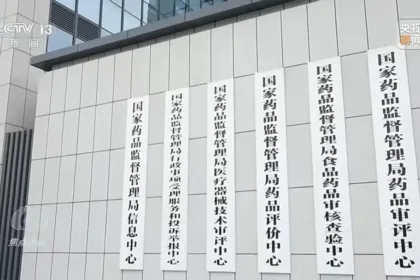 CCTV 13
新闻
央视
新闻
国家药品监督管理局信息中心
国家药品监督管理局行政事项受理服务和投诉举报中心
国家药品监督管理局医疗器械技术审评中心
国家药品监督管理局药品评价中心
国家药品监督管理局食品药品审核查验中心
国家药品监督管理局药品审评中心
焦点